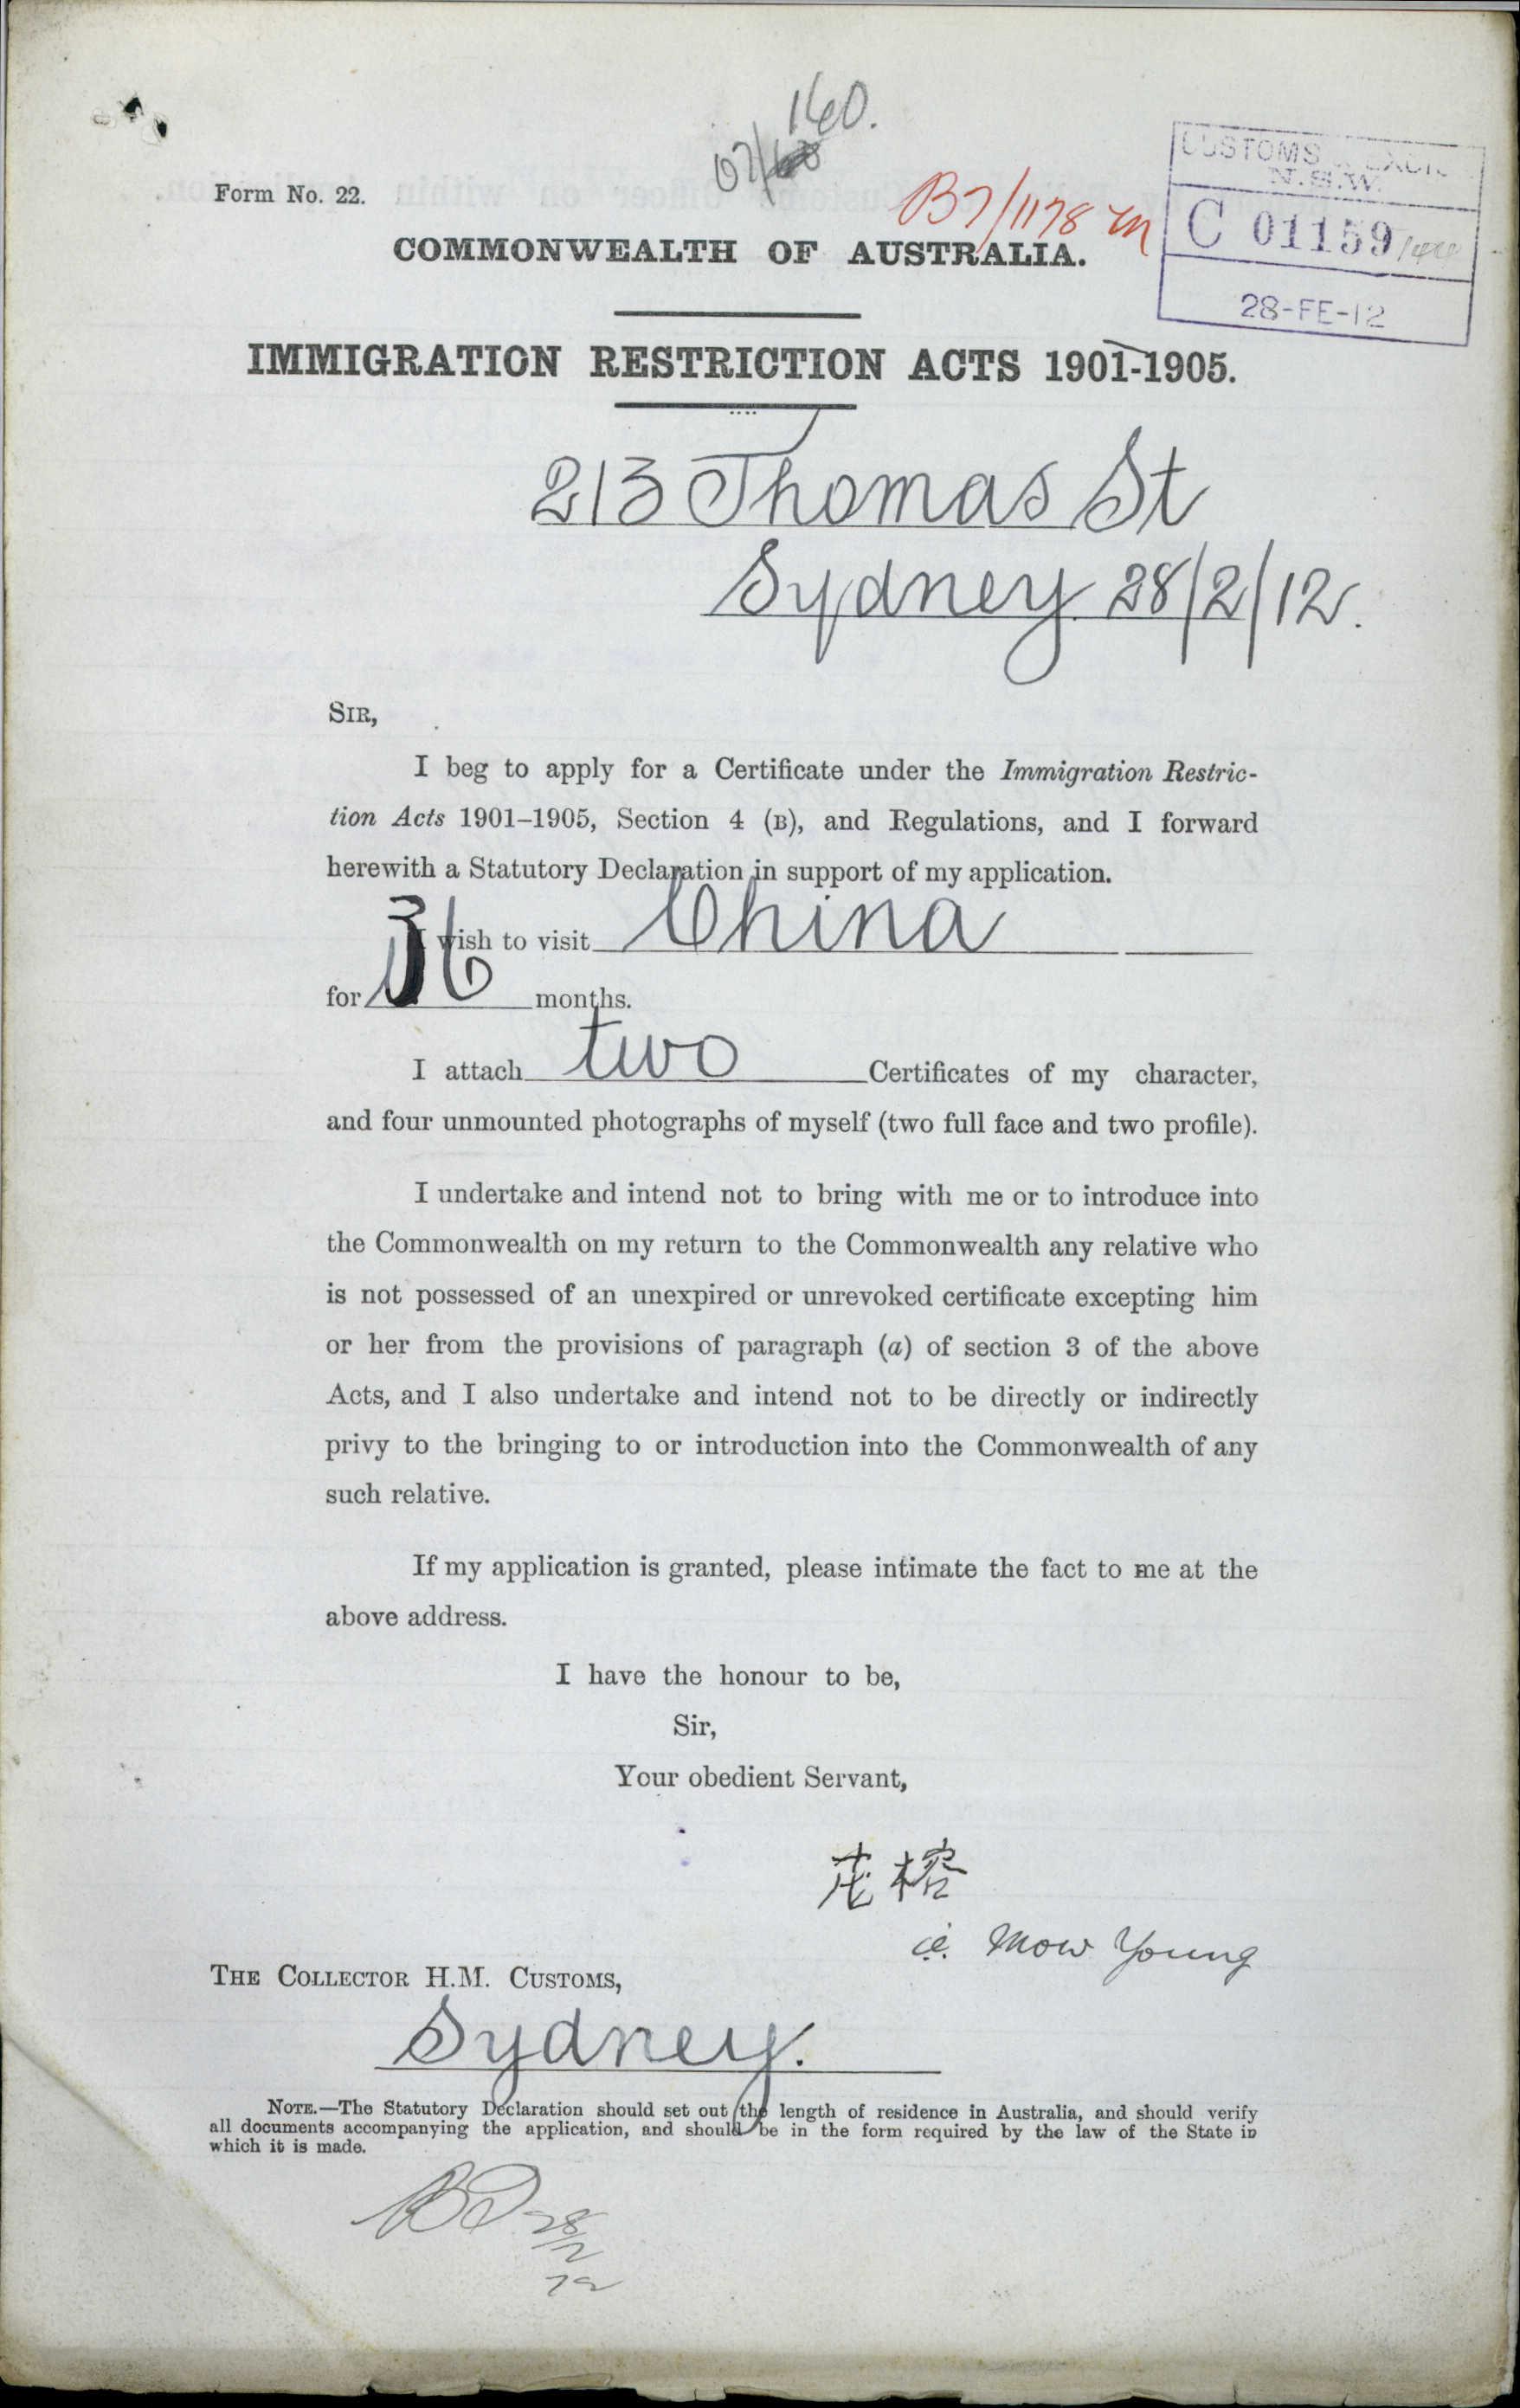 160.
07/
Form No. 22.
B7/1178
CUSTOMS & EXCISE
N.S.W.
C 01159
28-FE-12
COMMONWEALTH OF AUSTRALIA.
IMMIGRATION RESTRICTION ACTS 1901-1905.
213 Thomas St
Sydney 28/2/12.
SIR,
I beg to apply for a Certificate under the Immigration Restric-
tion Acts 1901–1905, Section 4 (B), and Regulations, and I forward
herewith a Statutory Declaration in support of my application.
I wish to visit China
for 36 months.
I attach two Certificates of my character,
and four unmounted photographs of myself (two full face and two profile).
I undertake and intend not to bring with me or to introduce into
the Commonwealth on my return to the Commonwealth any relative who
is not possessed of an unexpired or unrevoked certificate excepting him
or her from the provisions of paragraph (a) of section 3 of the above
Acts, and I also undertake and intend not to be directly or indirectly
privy to the bringing to or introduction into the Commonwealth of any
such relative.
If my application is granted, please intimate the fact to me at the
above address.
I have the honour to be,
Sir,
Your obedient Servant,
茂榕
i.e. Mow Young
THE COLLECTOR H.M. CUSTOMS,
Sydney.
NOTE.—The Statutory Declaration should set out the length of residence in Australia, and should verify
all documents accompanying the application, and should be in the form required by the law of the State in
which it is made.
28/2
12